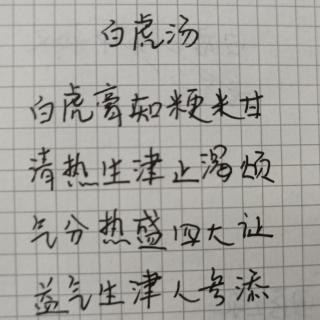 白虎汤
白虎膏知粳米甘
清热生津止渴烦
气分热盛四大证
益气生津人参添